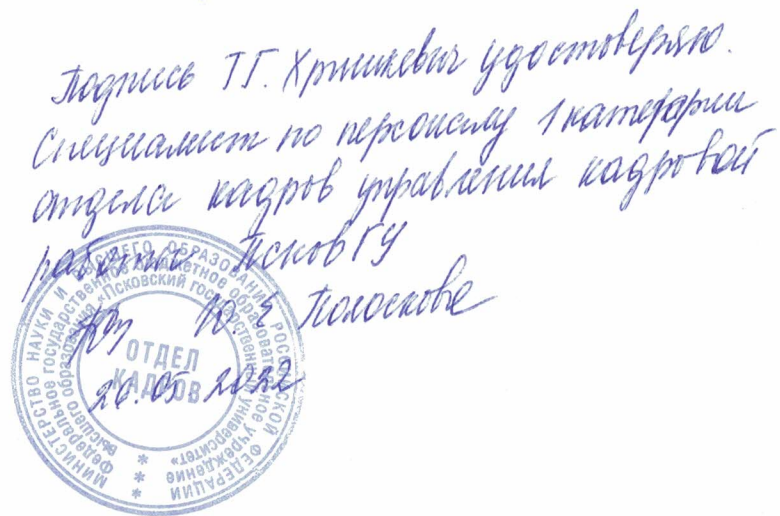 Подпись Т.Г. Хришкевич удостоверяю.
Специалист по персоналу 1 категории
отдела кадров управления кадровой
работы ПсковГУ
Ю.Е. Полоскова
26.05.2022
МИНИСТЕРСТВО НАУКИ И ВЫСШЕГО ОБРАЗОВАНИЯ РОССИЙСКОЙ ФЕДЕРАЦИИ
Федеральное государственное бюджетное образовательное учреждение
высшего образования «Псковский государственный университет»
ОТДЕЛ
КАДРОВ